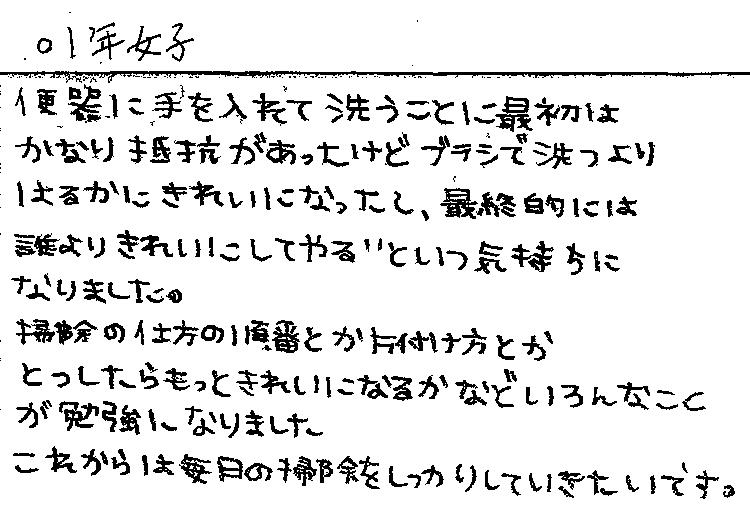 ○1年女子
便器に手を入れて洗うことに最初は
かなり抵抗があったけどブラシで洗うより
はるかにきれいになったし、最終的には
誰よりきれいにしてやる"という気持ちに
なりました。
掃除の仕方の順番とか片付け方とか
どうしたらもっときれいになるかなどいろんなこと
が勉強になりました
これからは毎日の掃除をしっかりしていきたいです。